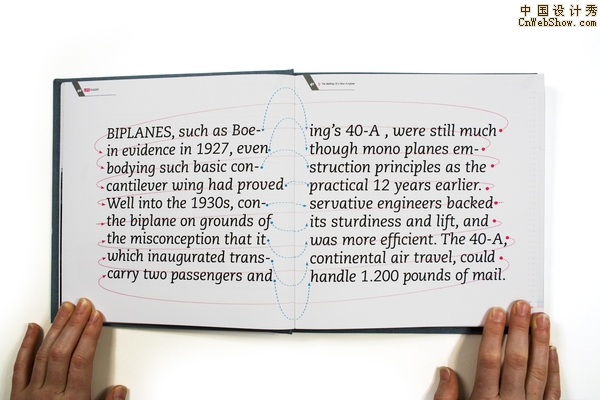 中国设计秀
CnWebShow.com
BIPLANES, such as Boe-
ing's 40-A , were still much
in evidence in 1927, even
though mono planes em-
bodying such basic con-
struction principles as the
cantilever wing had proved
practical 12 years earlier.
Well into the 1930s, con-
servative engineers backed
the biplane on grounds of
its sturdiness and lift, and
the misconception that it
was more efficient. The 40-A,
which inaugurated trans-
continental air travel, could
carry two passengers and
handle 1.200 pounds of mail.